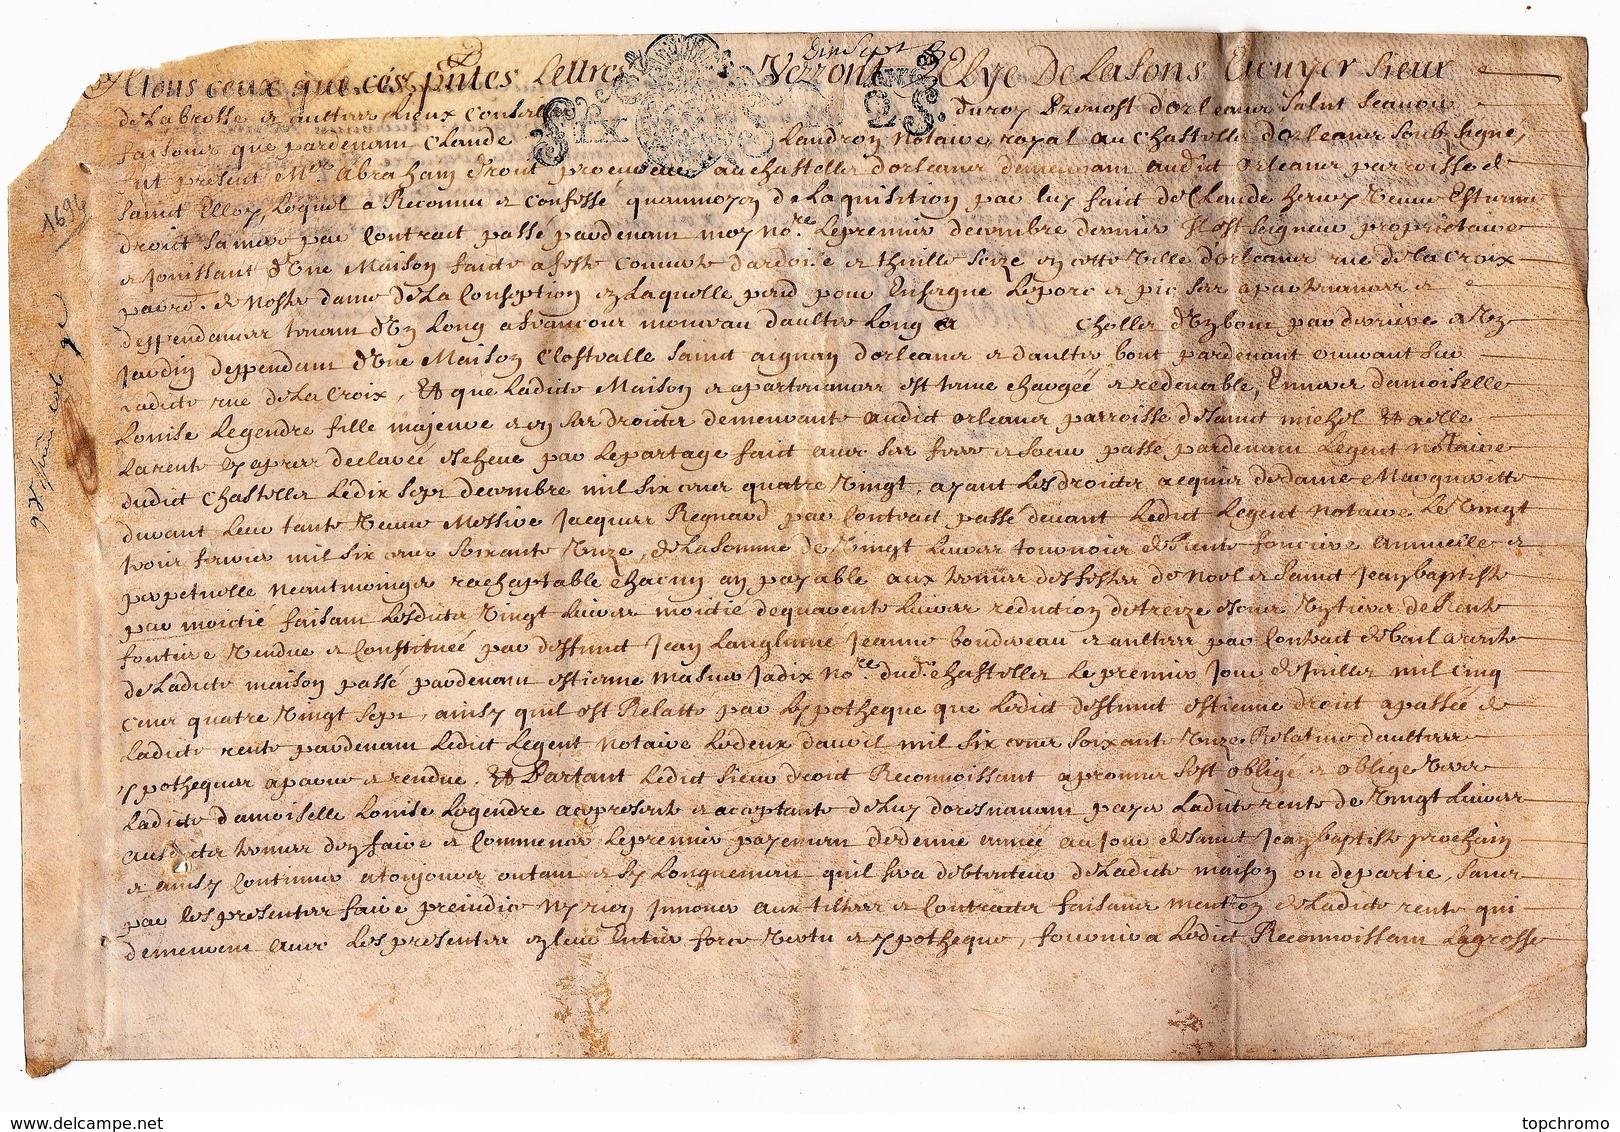 A tous ceux que ces pntes Lettres Verront Elye De Lafons Escuyer Sieur
de La brosse et aultres Lieux Conser du roy Prevost d'orleans Salut Scavoir
faisons que pardevant Claude Landron notaire royal au Chastellet d'orleans soubsigné,
fut present Mre Abraham droit procureur au chastellet d'orleans demeurant audict Orleans parroisse de
Sainct Elloy, Lequel a Reconnu et Confessé quaumoyen de Laquisition par luy faict de Claude hervy Veuve Estienne
droict par Contract passé pardevant moy nore Le premier decembre dernier Il est Seigneur proprietaire
et Jouissant d'Une Maison faicte a feste Couverte d'ardoise et thuille Size en cette Ville d'orleans rue de La Croix
parre de Nostre dame de La Conseption en Laquelle pend pour Enseigne Le porc et pic ses apartenances et
deppendances tenant d'Un Long a francois monceau d'aultre Long a Chollet d'Un bout par derriere a Un
Jardin deppendant d'Une Maison Cloistralle Sainct aignan d'orleans et d'aultre bout pardevant ouvrant sur
Ladicte rue de La Croix, Et que Ladicte Maison et apartenances est tenue chargée et redevable, Envers damoiselle
Louise Legendre fille majeure et en ses droicts demeurante audict orleans parroisse de Sainct michel Et a elle
La rente cy apres declarée escheue par Le partage faict avec ses freres et soeurs passé pardevant Legent notaire
dudict Chastellet Le dix sept decembre mil six cens quatre Vingt, ayant Les droicts acquis de dame Marguerite
durant Leur tante Veuve Messire Jacques Regnard par Contract passé devant Ledict Legent notaire Le Vingt
trois fevrier mil six cens soixante Unze, de La somme de Vingt Livres tournois de Rente fonciere annuelle et
perpetuelle neantmoinge rachaptable chacun an payable aux termes des festes de Noel et Sainct Jean baptiste
par moictié faisant Lesdictes Vingt Livres moictié de quarente Livres reduction de treize escus Un tiers de Rente
fonciere Vendue et Constituée par deffunct Jean Langlumé Jeanne boudreau et aultres par Contract de bail a rente
de Ladicte maison passé pardevant estienne masuer Jadix nore dudt chastellet Le premier Jour de Juillet mil Cinq
Cens quatre Vingt sept, ainsy quil est Relatté par Lypotheque que Ledict deffunct estienne droict a passée de
Ladicte rente pardevant Ledict Legent notaire Le deux d'avril mil six cens soixante Unze Relative d'aultres
ypotheques apacue et rendue, Et Partant Ledict sieur droict Reconnoissant a promis s'est obligé et oblige Vers
Ladicte damoiselle Louise Legendre a ce presente et acceptante de Luy doresnavant payer Ladicte rente de Vingt Livres
ausdicts termes d'en faire et Commencer Le premier payement de demie année au Jour de Sainct Jean baptiste prochain
et ainsy Continuer a tousjours autant et sy Longuement quil sera detenteur de Ladicte maison ou de partie, sans
par Les presentes faire preiudice Ny rien Innover aux tiltres et Contracts faisans mention de Ladicte rente qui
demeurent avec Les presentes en leur Entier force Vertu et ypotheque, fournira Ledict Reconnoissant La grosse
1694
Six
2 S.
topchromo